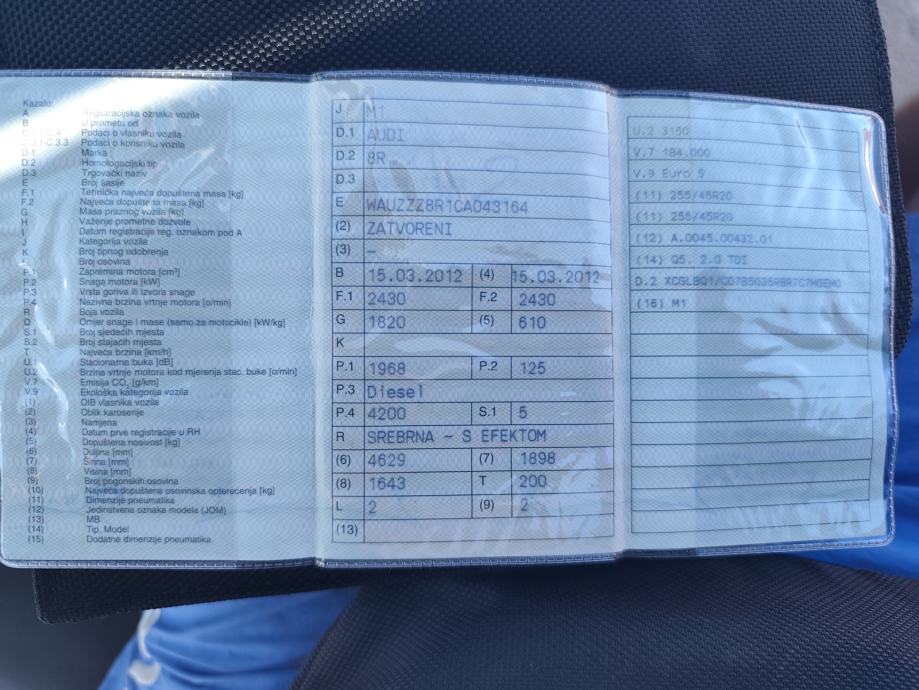 Kazalo:
A Registracijska oznaka vozila
B U prometu od
C.1.1-C.4 Podaci o vlasniku vozila
C.3.1-C.3.3 Podaci o korisniku vozila
D.1 Marka
D.2 Homologacijski tip
D.3 Trgovački naziv
E Broj šasije
F.1 Tehnička najveća dopuštena masa [kg]
F.2 Najveća dopuštena masa [kg]
G Masa praznog vozila [kg]
H Važenje prometne dozvole
I Datum registracije reg. oznakom pod A
J Kategorija vozila
K Broj tipnog odobrenja
L Broj osovina
P.1 Zapremina motora [cm³]
P.2 Snaga motora [kW]
P.3 Vrsta goriva ili izvora snage
P.4 Nazivna brzina vrtnje motora [o/min]
R Boja vozila
Q Omjer snage i mase (samo za motocikle) [kW/kg]
S.1 Broj sjedećih mjesta
S.2 Broj stajaćih mjesta
T Najveća brzina [km/h]
U.1 Stacionarna buka [dB]
U.2 Brzina vrtnje motora kod mjerenja stac. buke [o/min]
V.7 Emisija CO₂ [g/km]
V.9 Ekološka kategorija vozila
(1) OIB vlasnika vozila
(2) Oblik karoserije
(3) Namjena
(4) Datum prve registracije u RH
(5) Dopuštena nosivost [kg]
(6) Duljina [mm]
(7) Širina [mm]
(8) Visina [mm]
(9) Broj pogonskih osovina
(10) Najveća dopuštena osovinska opterećenja [kg]
(11) Dimenzije pneumatika
(12) Jedinstvena oznaka modela (JOM)
(13) MB
(14) Tip, Model
(15) Dodatne dimenzije pneumatika
J M1
D.1 AUDI
D.2 8R
D.3
E WAUZZZ8R1CA043164
(2) ZATVORENI
(3) –
B 15.03.2012 (4) 15.03.2012
F.1 2430 F.2 2430
G 1820 (5) 610
K
P.1 1968 P.2 125
P.3 Diesel
P.4 4200 S.1 5
R SREBRNA - S EFEKTOM
(6) 4629 (7) 1898
(8) 1643 T 200
L 2 (9) 2
(13)
U.2 3150
V.7 184.000
V.9 Euro 5
(11) 255/45R20
(11) 255/45R20
(12) A.0045.00432.01
(14) Q5. 2.0 TDI
D.2
(16) M1